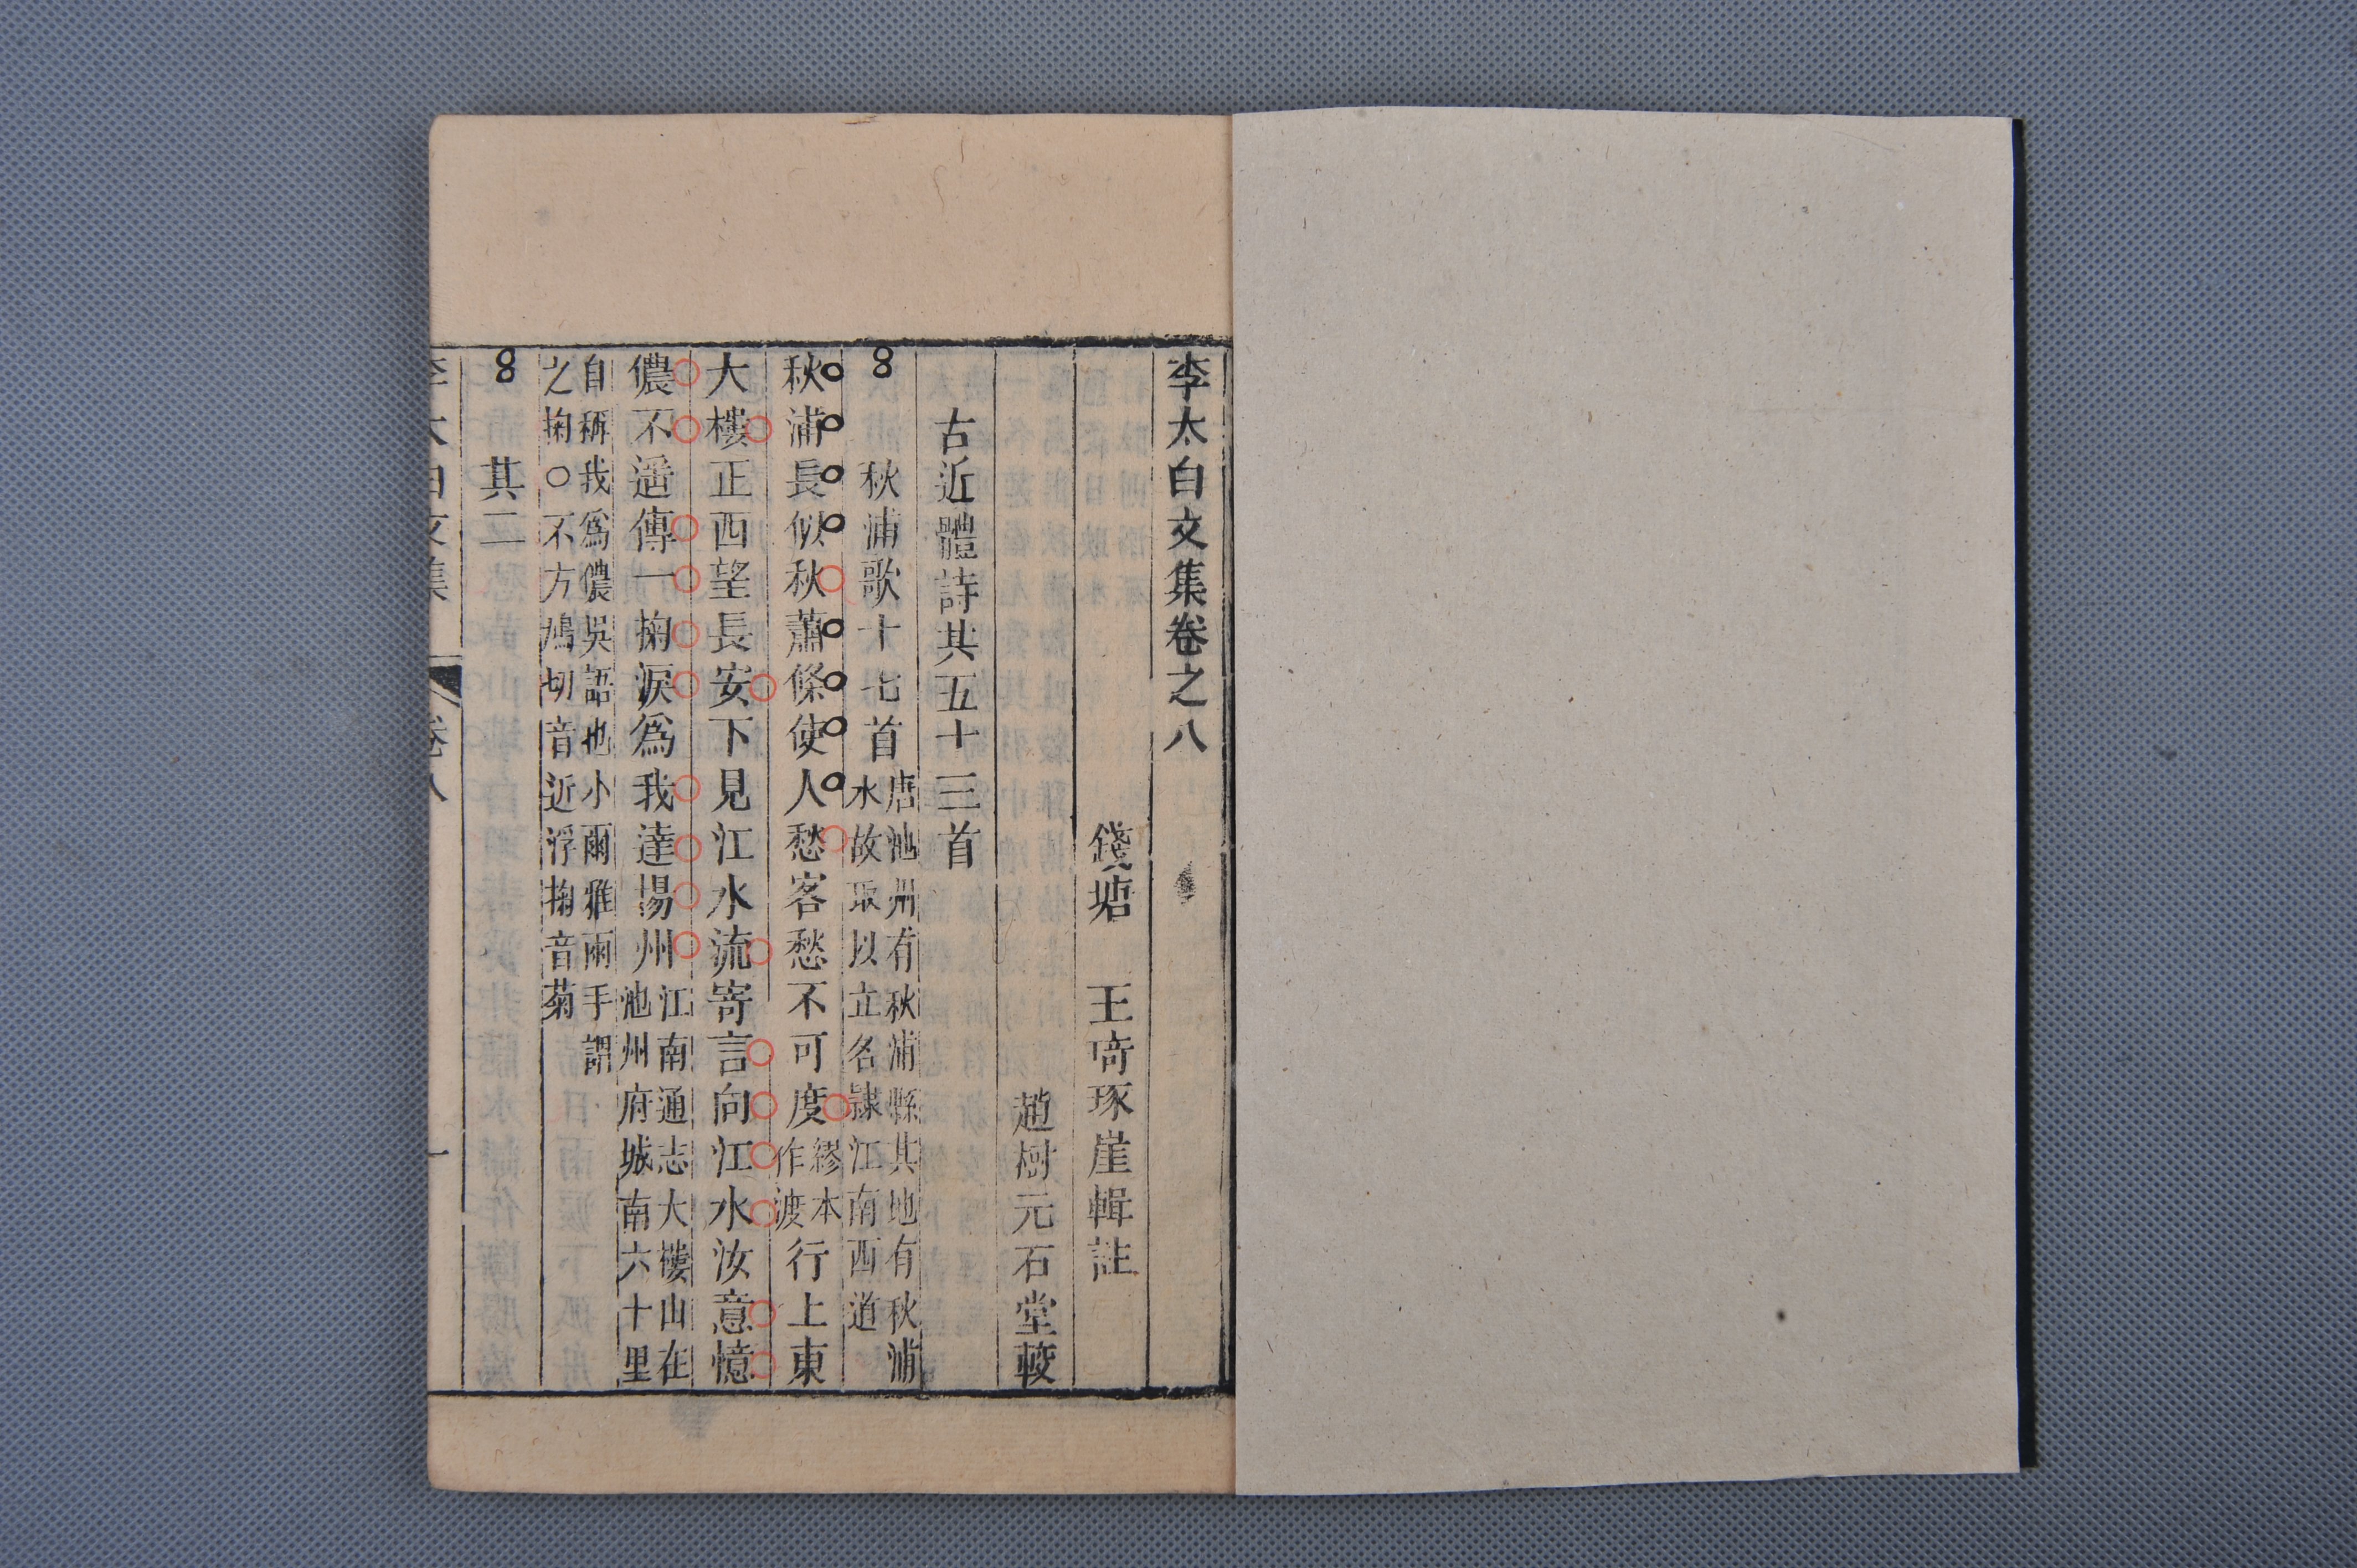 李太白文集卷之八
錢塘 王琦琢崖輯註
趙樹元石堂較
古近體詩共五十三首
秋浦歌十七首 唐池州有秋浦縣其地有秋浦
水故取以立名隷江南西道
秋浦長似秋蕭條使人愁客愁不可度 繆本
作渡 行上東
大樓正西望長安下見江水流寄言向江水汝意憶
儂不遥傳一掬淚爲我達揚州 江南通志大樓山在
池州府城南六十里
自稱我爲儂吳語也小爾雅兩手謂
之掬○不方鳩切音近浮掬音菊
其二
李太白文集 卷八 一